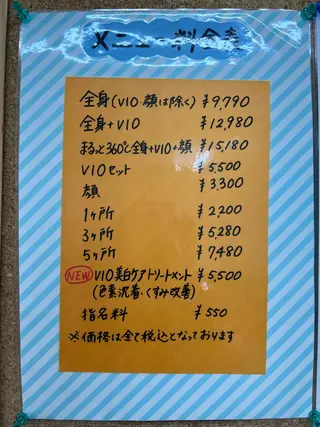 メニュー料金表
全身(VIO・顔は除く) ¥9,790
全身+VIO ¥12,980
まるっと360°全身+VIO+顔 ¥15,180
VIOセット ¥5,500
顔 ¥3,300
1ヶ所 ¥2,200
3ヶ所 ¥5,280
5ヶ所 ¥7,480
NEW VIO美白ケアトリートメント ¥5,500
(色素沈着・くすみ改善)
指名料 ¥550
※価格は全て税込となっております